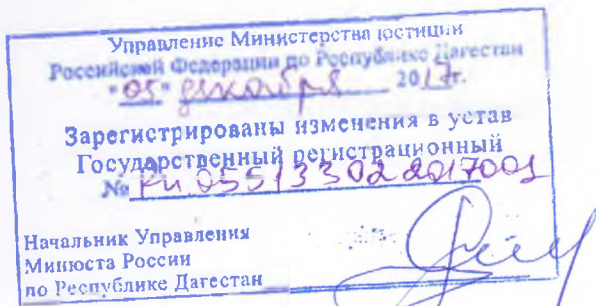 Управление Министерства юстиции
Российской Федерации по Республике Дагестан
"05" декабря 2017г.
Зарегистрированы изменения в устав
Государственный регистрационный
№ RU055133022017001
Начальник Управления
Минюста России
по Республике Дагестан